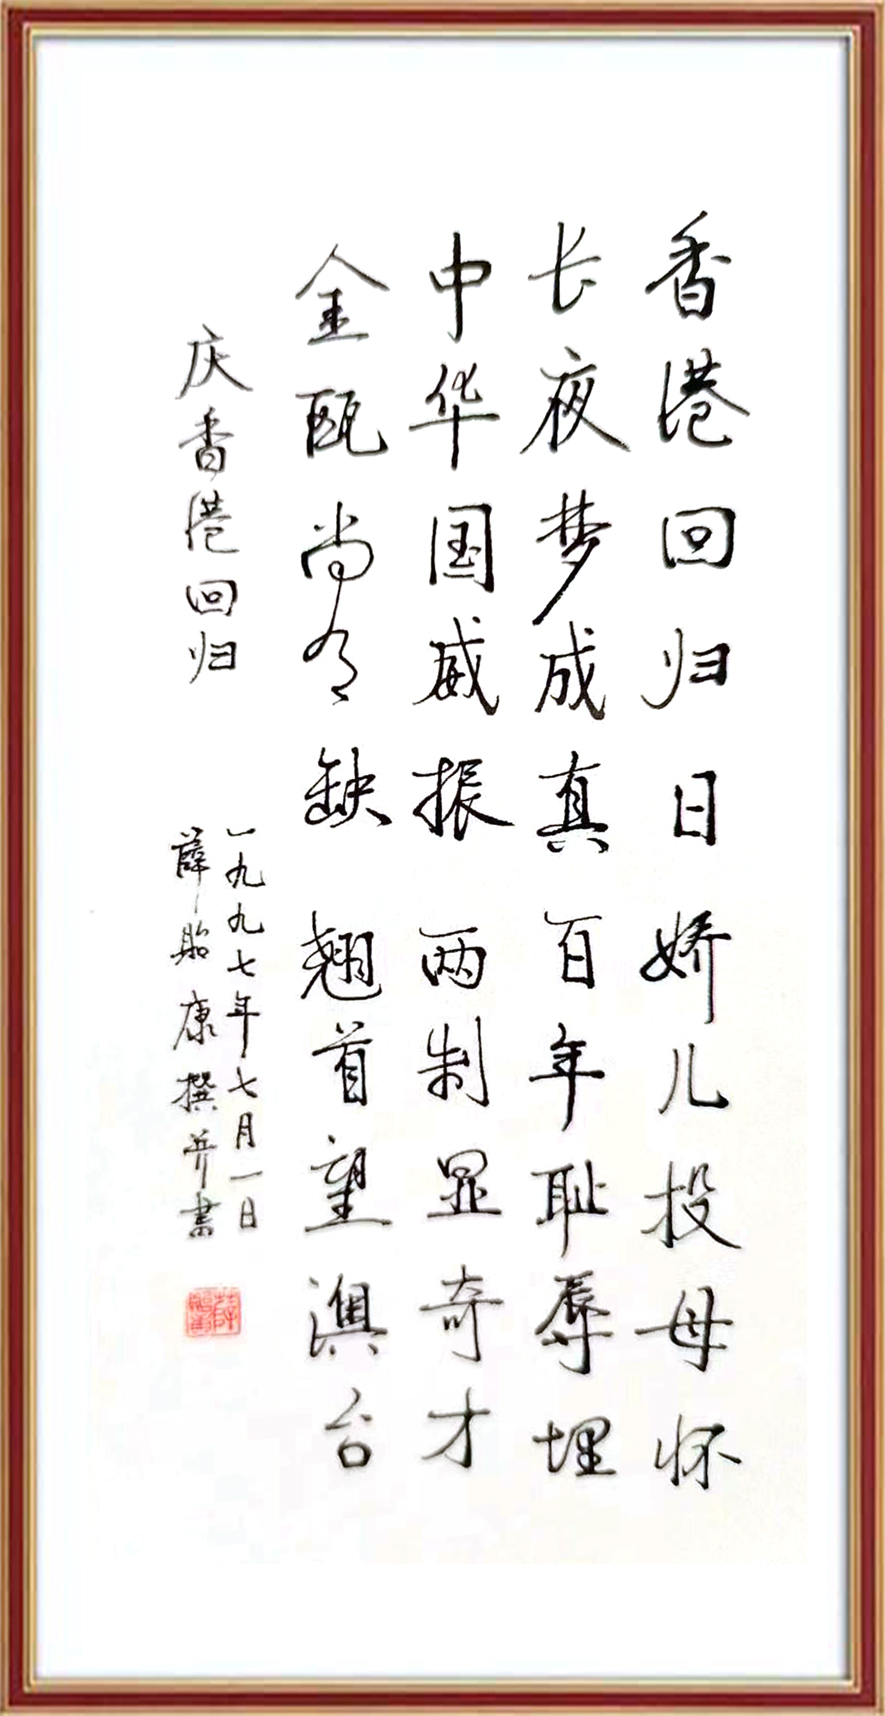 香港回归日 娇儿投母怀
长夜梦成真 百年耻辱埋
中华国威振 两制显奇才
金瓯尚有缺 翘首望澳台
庆香港回归
一九九七年七月一日
薛贻康撰并书